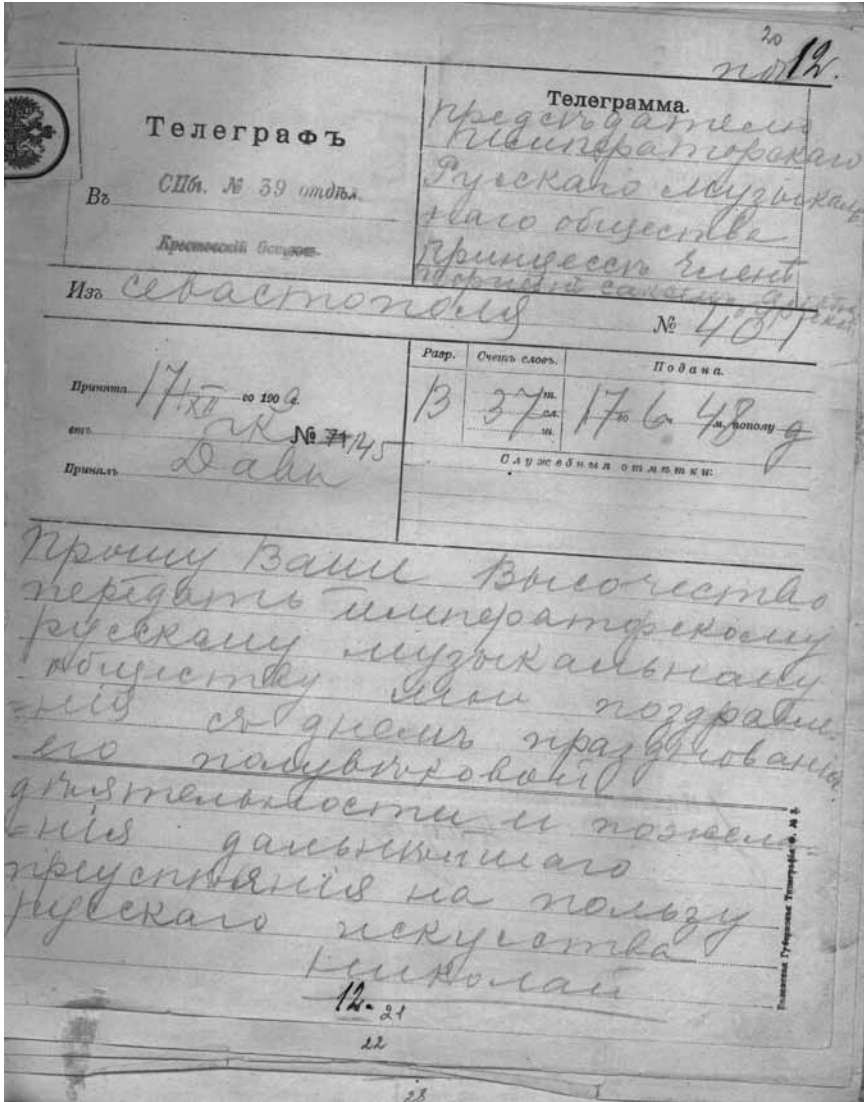 20
12.
Телеграфъ
Въ СПб. № 39 отдѣл.
Крестовскій
Телеграмма.
предсѣдателю
Императорскаго
Русскаго музыкаль
наго общества
принцессѣ Елент
Изъ Севастополя № 401
Принята 17/XII го 1909.
№ 71/145
Принялъ Дави
Разр. Счетъ словъ. Подана.
13 37 т. сл. 17 го 6 ч 48 м. пополу д
Служебныя отмѣтки:
Прошу Ваше Высочество
передать императорскому
русскому музыкальному
обществу мои поздравле-
=нія съ днемъ празднованія
его полувѣковой
дѣятельности и пожела-
=нія дальнѣйшаго
преуспѣянія на пользу
русскаго искусства
Николай
12- 21
22
23